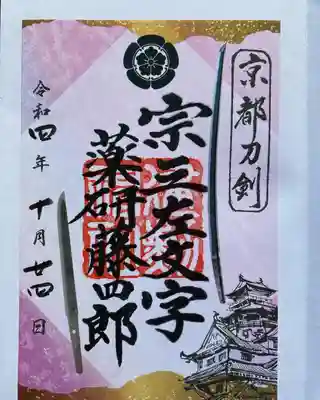 京都刀剣
宗三左文字
薬研藤四郎
令和四年
十月廿四日